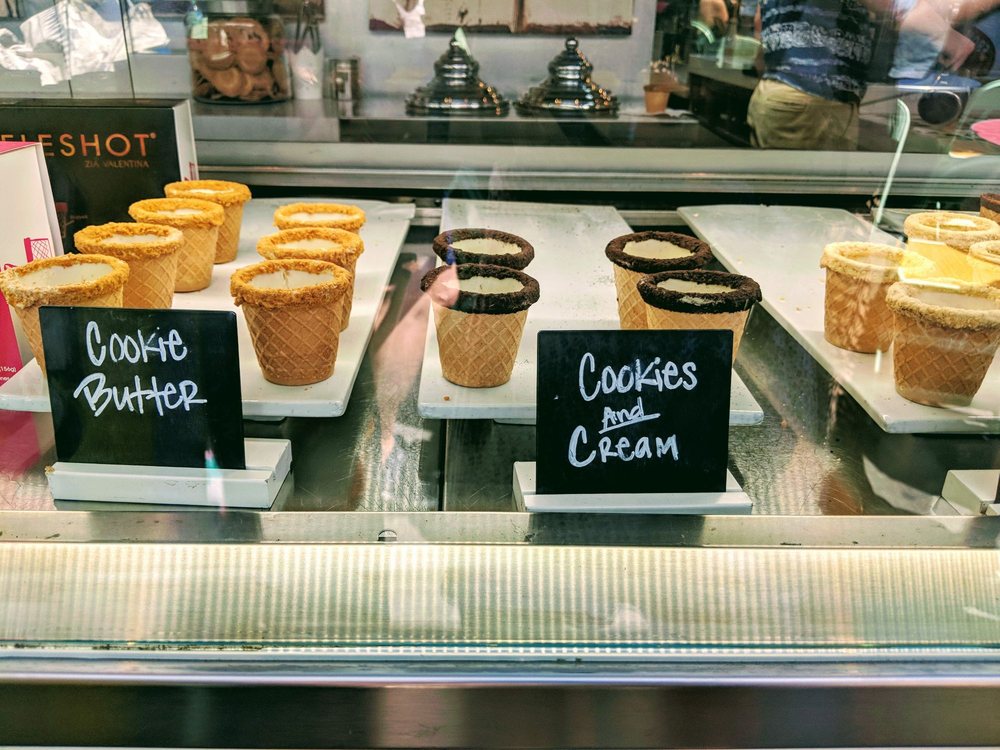 ELESHOT®
ZIA VALENTINA
Cookie
Butter
Cookies
And
Cream